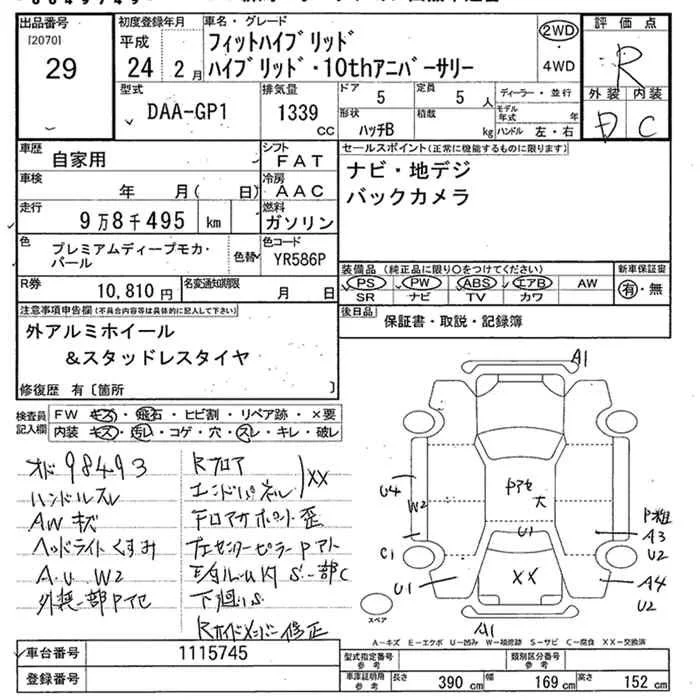 出品番号
[2070]
29
初度登録年月
平成
24 2月
車名・グレード
フィットハイブリッド
ハイブリッド・10thアニバーサリー
2WD
4WD
評価点
R
外装 内装
D C
型式
DAA-GP1
排気量
1339
CC
ドア 5
定員 5 人
ディーラー・並行
形状
ハッチB
積載
kg
モデル年式 年
ハンドル 左・右
車歴
自家用
シフト
FAT
セールスポイント(正常に機能するものに限ります)
ナビ・地デジ
バックカメラ
車検
年 月( 日)
冷房
AAC
走行
9万8千495 km
燃料
ガソリン
色
プレミアムディープモカ・
パール
色替
色コード
YR586P
装備品(純正品に限り○をつけてください)
PS PW ABS エアB AW
SR ナビ TV カワ
新車保証書
有・無
R券
10,810円
名変通知期限
月 日
後日品
保証書・取説・記録簿
注意事項申告欄(不具合内容等は具体的に記入して下さい)
外アルミホイール
&スタッドレスタイヤ
修復歴 有〔箇所 〕
検査員
記入欄
FW キズ・飛石・ヒビ割・リペア跡・×要
内装 キズ・汚れ・コゲ・穴・スレ・キレ・破レ
オド98493
ハンドルスレ
AWキズ
ヘッドライトくすみ
A.U W2
外装一部Pアセ
Rフロア
エンドパネル
XX
下廻りS
A1
U4
W2
Pアセ
大
U1
P粗
A3
U2
C1
U1
XX
A4
U2
A1
スペア
A-キズ E-エクボ U-凹み W-補修跡 S-サビ C-腐食 XX-交換済
車台番号
1115745
登録番号
型式指定番号
参考
類別区分番号
参考
車庫証明用
参考
長さ 390 cm
幅 169 cm
高さ 152 cm